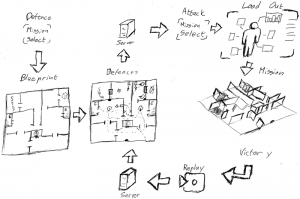 Defence
Mission
Select
Blueprint
Server
Defences
Attack
Mission
Select
Load Out
Mission
Victory
Replay
Server